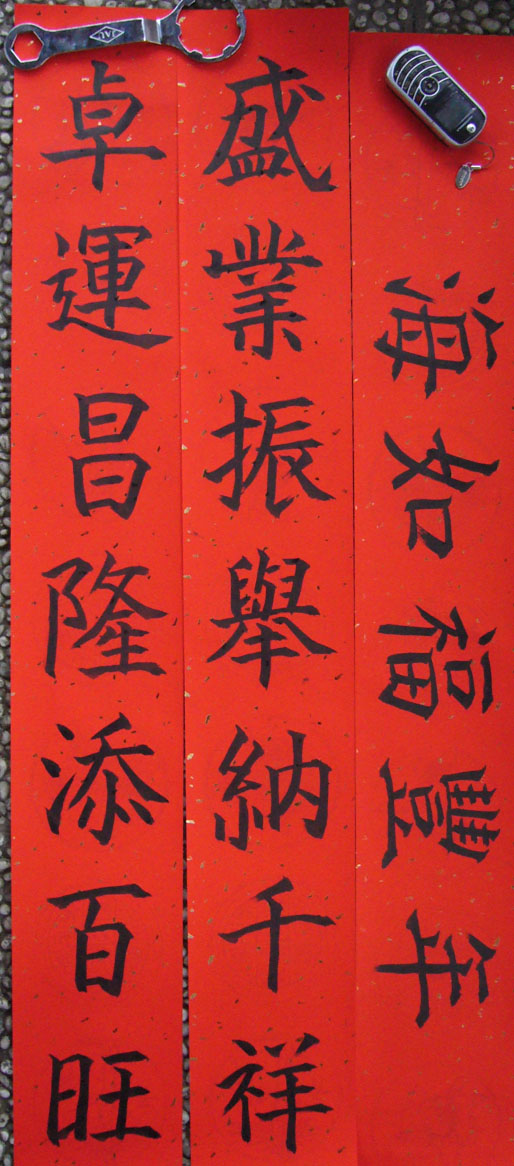 年豐福如海
盛業振舉納千祥
卓運昌隆添百旺